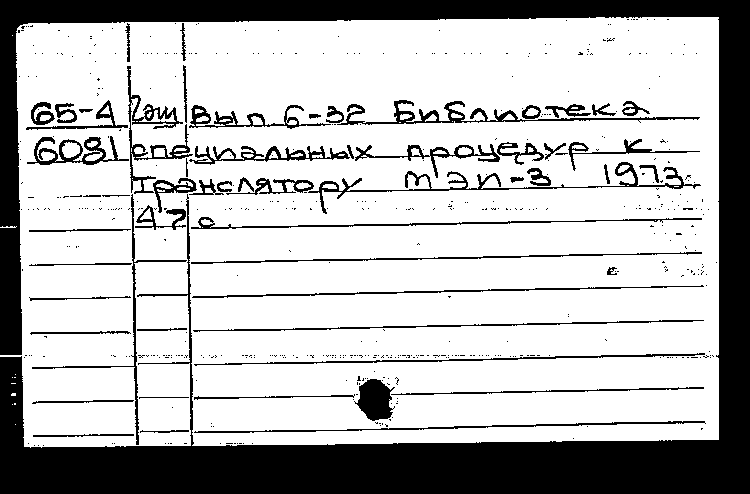 65-4 2эш Вып 6-32 Библиотека
6081 специальных процедур к
транслятору МЭИ-3. 1973.
47 с.